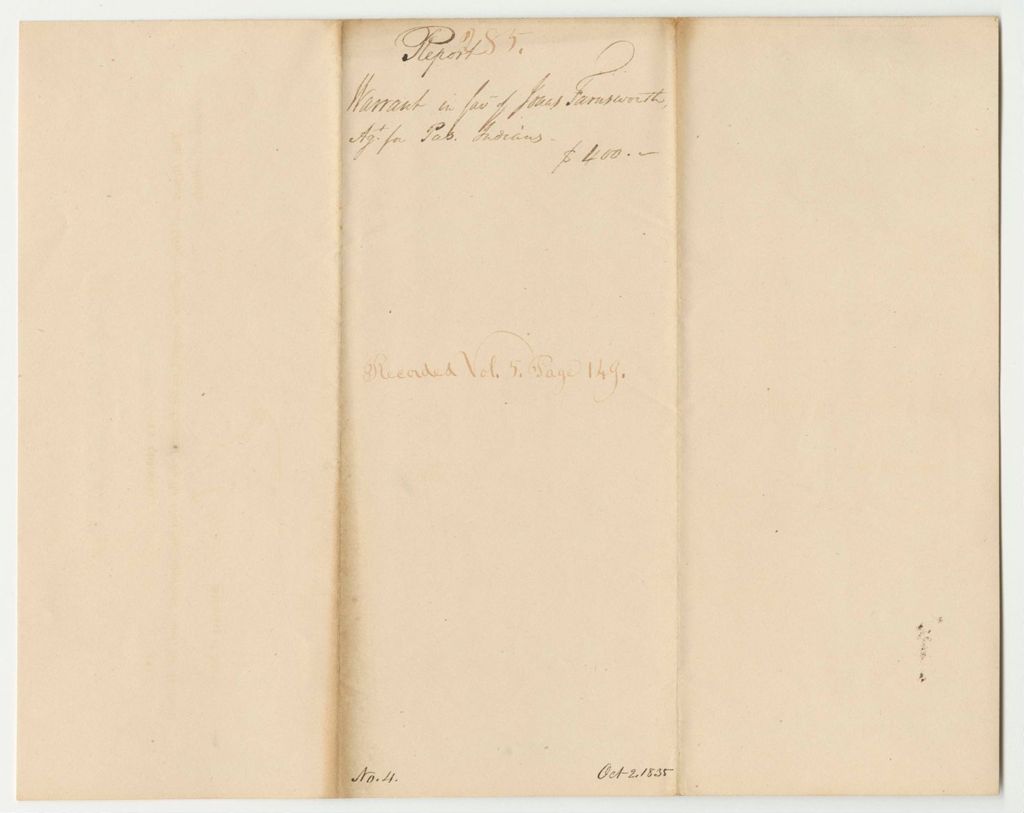 Report 285.
Warrant in fav. of Jonas Farnsworth,
Agt. for Pas. Indians.
$ 400. –
Recorded Vol. 5. Page 149.
No. 4.
Oct 2. 1835